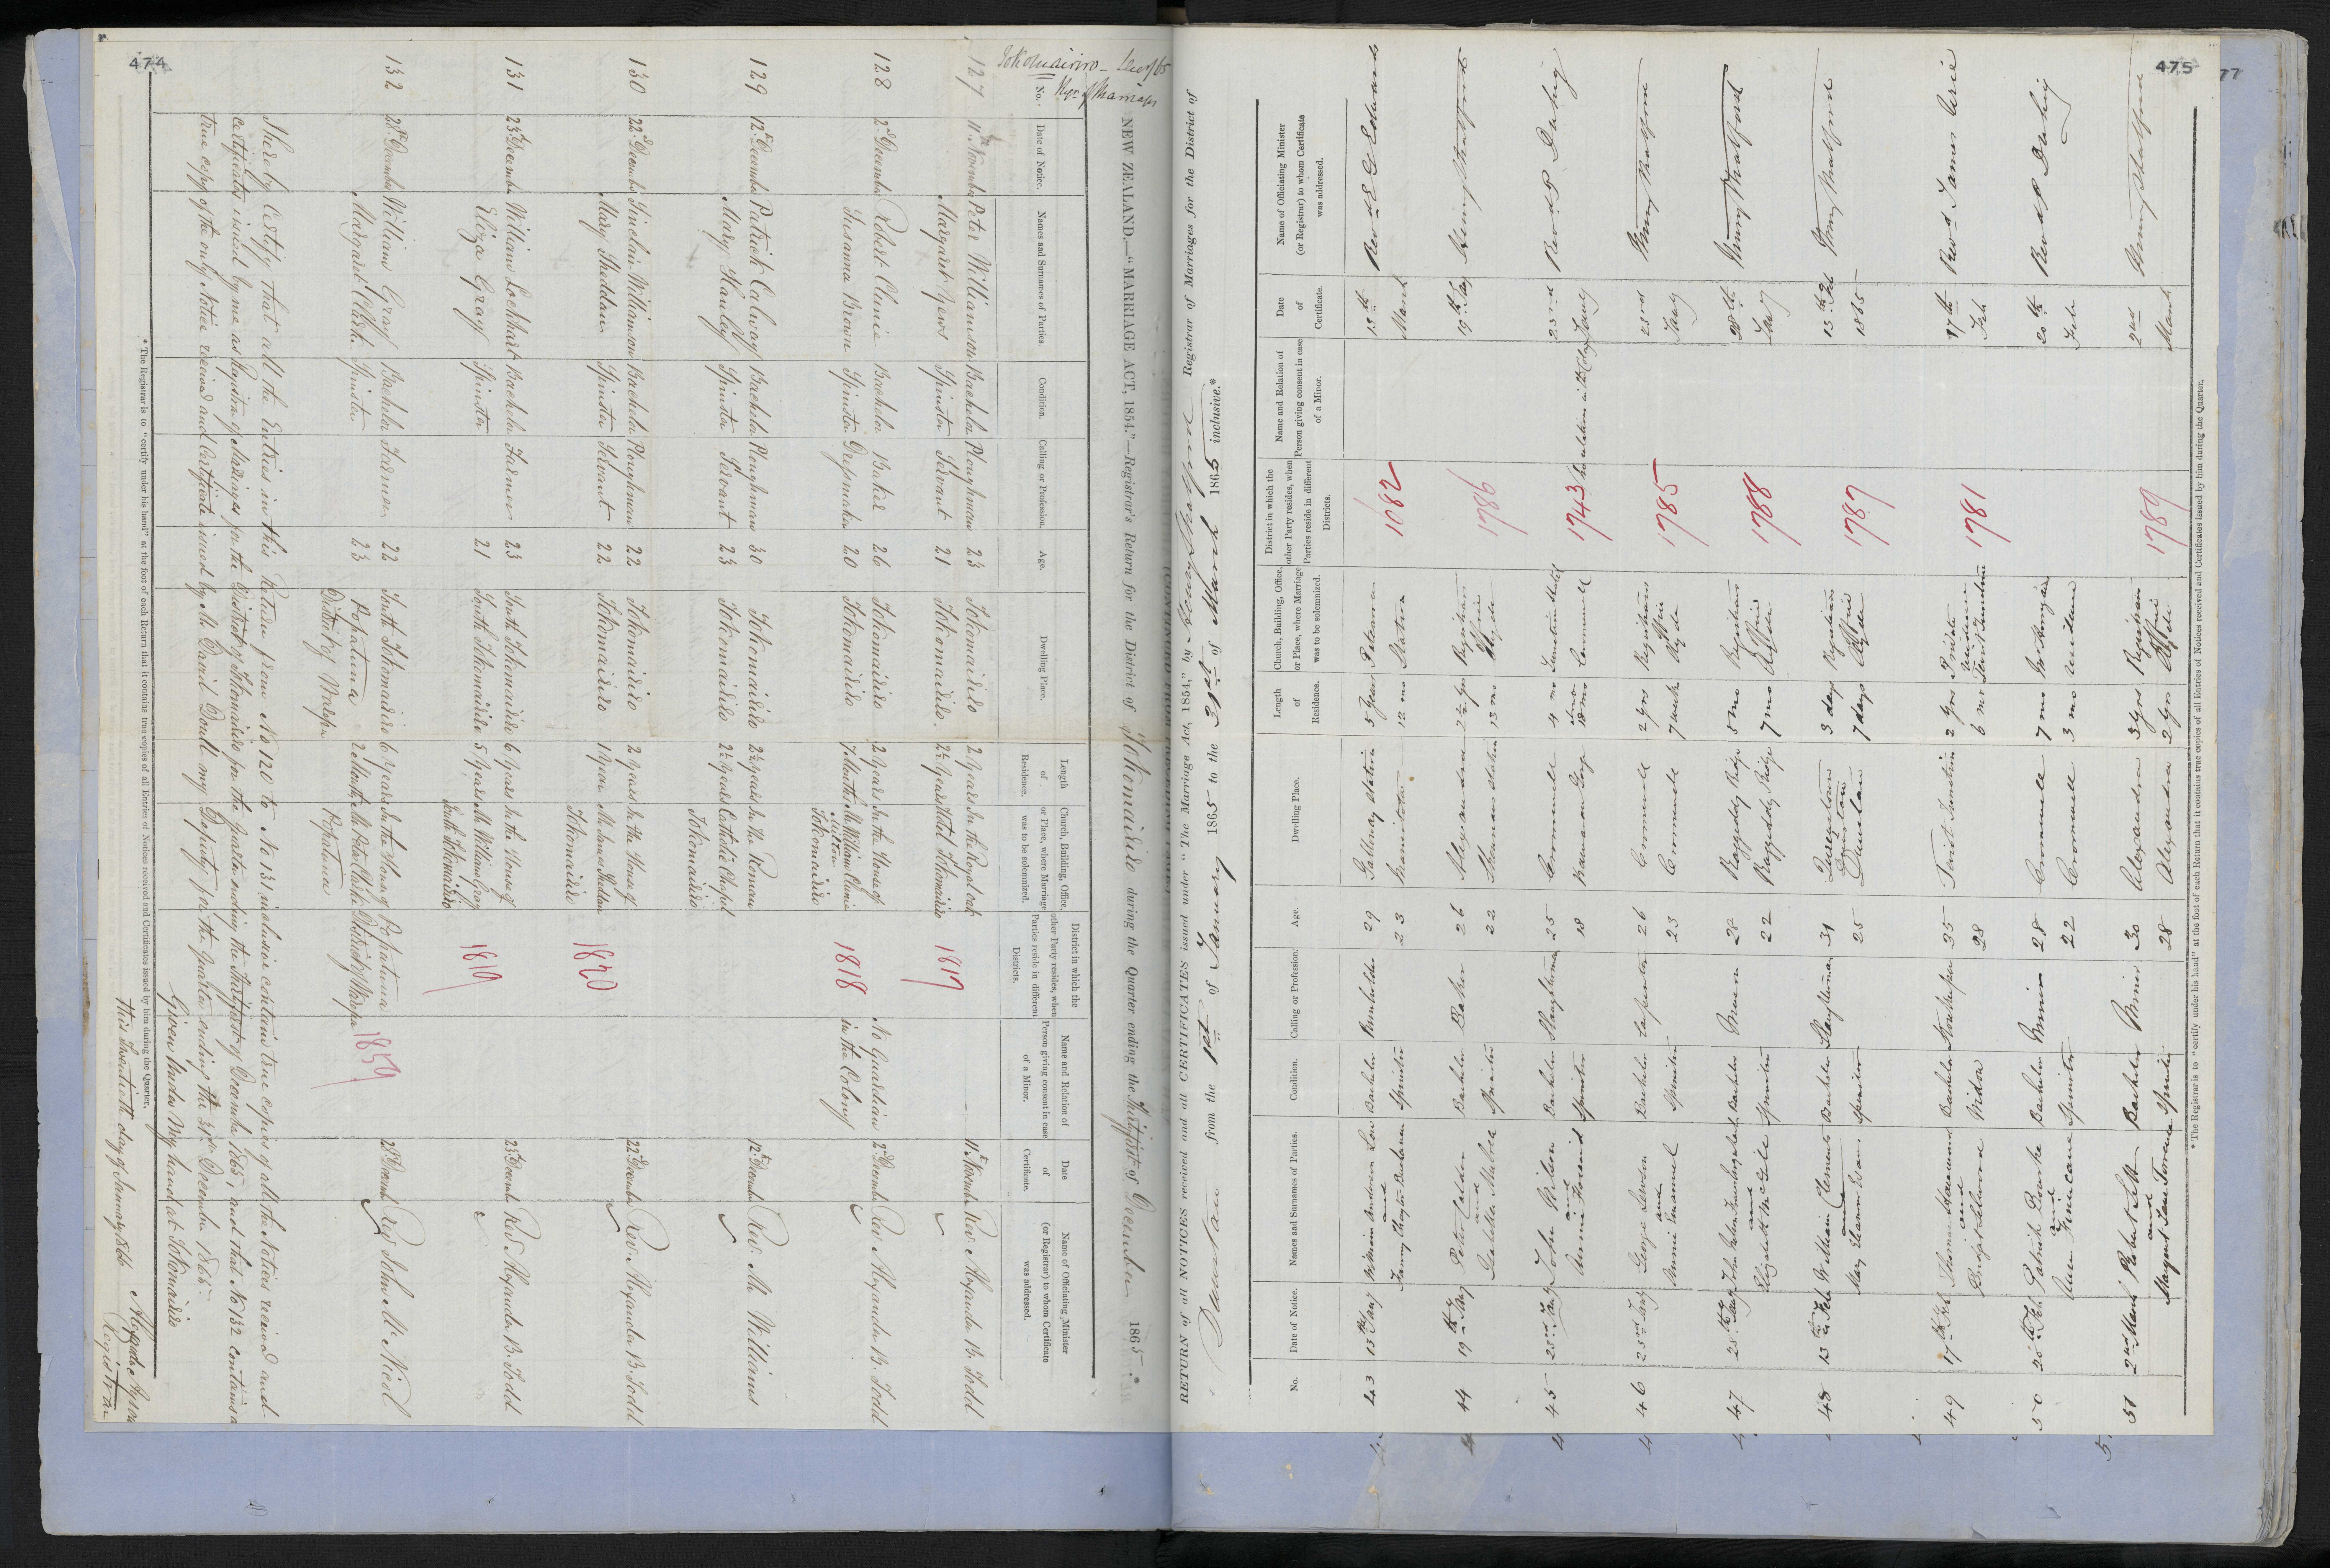 474
Tokomairiro
NEW ZEALAND.—"MARRIAGE ACT, 1854."—Registrar's Return for the District of Tokomairiro during the Quarter ending the Thirtyfirst of December 1865.*
No. Date of Notice. Names and Surnames of Parties. Condition. Calling or Profession. Age. Dwelling Place. Length of Residence. Church, Building, Office, or Place, where Marriage was to be solemnized. District in which the other Party resides, when Parties reside in different Districts. Name and Relation of Person giving consent in case of a Minor. Date of Certificate. Name of Officiating Minister (or Registrar) to whom Certificate was addressed.
127 11th November Peter Williamson Bachelor Ploughman 23 Tokomairiro 2 years In the Royal Oak 1817 11th November Rev. Alexander B. Todd
Margaret Spinster Servant 21 Tokomairiro 2½ years Hotel Tokomairiro
128 2d December Robert Clunie Bachelor Baker 26 Tokomairiro 2 years In the House of 1818 No Guardian 2d December Rev. Alexander B. Todd
Susanna Brown Spinster Dressmaker 20 Tokomairiro 7 Months Mr William Clunie in the Colony
Milton
Tokomairiro
129 12th December Patrick Calway Bachelor Ploughman 30 Tokomairiro 2½ years In the Roman 12th December Rev. Mr Williams
Mary Hanley Spinster Servant 23 Tokomairiro 2½ years Catholic Chapel
Tokomairiro
130 22d December Sinclair Williamson Bachelor Ploughman 22 Tokomairiro 2 years In the House of 1820 22d December Rev. Alexander B Todd
Mary Sheddan Spinster Servant 22 Tokomairiro 1 year Mr James Sheddan
Tokomairiro
131 23d December William Lockhart Bachelor Farmer 23 South Tokomairiro 6 years In the House of 1819 23d December Rev Alexander B. Todd
Eliza Gray Spinster 21 South Tokomairiro 5 years Mr William Gray
South Tokomairiro
132 28th December William Gray Bachelor Farmer 22 South Tokomairiro 6 years In the House of Popotunoa 1859 28th December Rev John McNicol
Margaret Clarke Spinster 23 Popotunoa 2 Months Mr Peter Clarke District of Waropa
District of Waropa Popotunoa
I hereby Certify that all the Entries in this Return from No 120 to No 131 inclusive contain true copies of all the Notices received and
certificates issued by me as Registrar of Marriages for the District of Tokomairiro for the Quarter ending the Thirtyfirst of December 1865, and that No 132 contains a
true copy of the only Notice received and Certificate issued by Mr David Doull my Deputy for the Quarter ending the 31st December 1865.
Given Under My hand at Tokomairiro
this Twentieth day of January 1866
Registrar
* The Registrar is to "certify under his hand" at the foot of each Return that it contains true copies of all Entries of Notices received and Certificates issued by him during the Quarter.
475
77
RETURN of all NOTICES received and all CERTIFICATES issued under "The Marriage Act, 1854," by Registrar of Marriages for the District of
Dunstan from the 1st of January 1865 to the 31st of March 1865 inclusive.*
No. Date of Notice. Names and Surnames of Parties. Condition. Calling or Profession. Age. Dwelling Place. Length of Residence. Church, Building, Office, or Place, where Marriage was to be solemnized. District in which the other Party resides, when Parties reside in different Districts. Name and Relation of Person giving consent in case of a Minor. Date of Certificate. Name of Officiating Minister (or Registrar) to whom Certificate was addressed.
43 13th Jany William Anderson Low Bachelor 29 Galloway Station 5 years Station 1682 13th March Revd E G Edwards
and
Fanny Spinster 23 12 mo
44 19th Jany Peter Calder Bachelor Baker 26 Alexandra 2½ yrs Registrars 1786 19th Jany
and
Isabella Spinster 22 Station 13 mo Office Clyde
45 23rd Jany John Wilson Bachelor 25 Cromwell 4 mo Hotel 1743 no relation in the Colony 23rd Jany Revd P
and
Annie Spinster 18 18 mo Cromwell
46 23rd Jany George Bachelor Carpenter 26 Cromwell 2 yrs Registrars 1785 23rd Jany
and
Spinster 23 Cromwell 7 weeks Office Clyde
47 28th Jany John Bachelor Miner 28 Raggedy Ridge 5 m Registrars 1788 28th Jany
and
Elizabeth McGill Spinster 22 Raggedy Ridge 7 mo Office
48 13th Feb William Clements Bachelor 31 Queenstown 3 days Registrars 1787 13th Feb 1865
and
Mary Evans Spinster 25 Dunstan 7 days Office Clyde
49 17th Feb Thomas Bachelor Storekeeper 35 2 yrs Private 1781 17th Feb Revd James
and
Bridget Widow 28 6 mo Residence
50 20th Feb Patrick Bourke Bachelor Miner 28 Cromwell 7 mo 20th Feb Revd P
and
Ann Finucane Spinster 22 Cromwell 3 mo
51 2nd March Robert Bachelor Miner 30 Alexandra 3 yrs Registrars 1789 2nd March
and
Margaret Jane Spinster 28 Alexandra 2 yrs Office Clyde
* The Registrar is to "certify under his hand" at the foot of each Return that it contains true copies of all Entries of Notices received and Certificates issued by him during the Quarter.